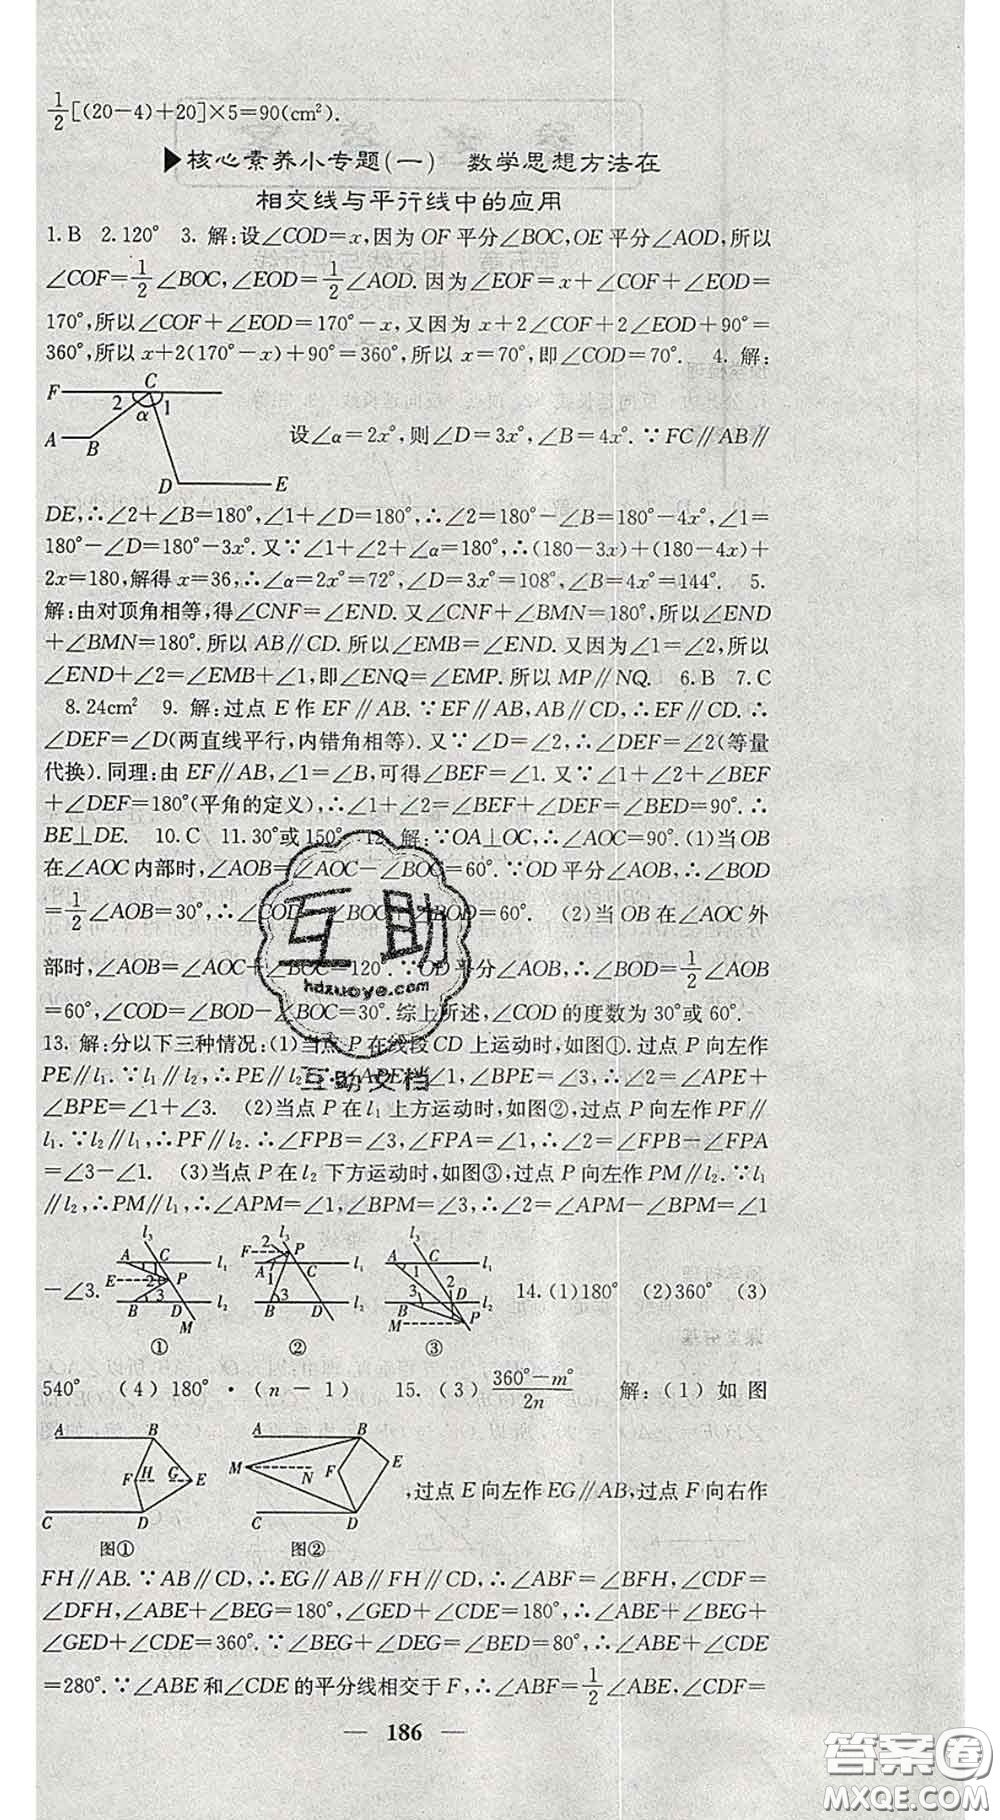 1/2[(20-4)+20]×5=90(cm²).
▶核心素养小专题(一) 数学思想方法在
相交线与平行线中的应用
1.B 2.120° 3. 解:设∠COD=x,因为 OF 平分∠BOC,OE 平分∠AOD,所以
∠COF=1/2∠BOC,∠EOD=1/2∠AOD. 因为∠EOF=x+∠COF+∠EOD=
170°,所以∠COF+∠EOD=170°-x,又因为 x+2∠COF+2∠EOD+90°=
360°,所以 x+2(170°-x)+90°=360°,所以 x=70°,即∠COD=70°. 4. 解:
F C 2 α 1 A B D E
设∠α=2x°,则∠D=3x°,∠B=4x°.∵FC∥AB∥
DE,∴∠2+∠B=180°,∠1+∠D=180°,∴∠2=180°-∠B=180°-4x°,∠1=
180°-∠D=180°-3x°.又∵∠1+∠2+∠α=180°,∴(180-3x)+(180-4x)+
2x=180,解得 x=36,∴∠α=2x°=72°,∠D=3x°=108°,∠B=4x°=144°. 5.
解:由对顶角相等,得∠CNF=∠END. 又∠CNF+∠BMN=180°,所以∠END
+∠BMN=180°. 所以 AB∥CD. 所以∠EMB=∠END. 又因为∠1=∠2,所以
∠END+∠2=∠EMB+∠1,即∠ENQ=∠EMP. 所以 MP∥NQ. 6.B 7.C
8.24cm² 9. 解:过点 E 作 EF∥AB.∵EF∥AB,AB∥CD,∴EF∥CD.∴
∠DEF=∠D(两直线平行,内错角相等). 又∵∠D=∠2,∴∠DEF=∠2(等量
代换).同理:由 EF∥AB,∠1=∠B,可得∠BEF=∠1. 又∵∠1+∠2+∠BEF
+∠DEF=180°(平角的定义),∴∠1+∠2=∠BEF+∠DEF=∠BED=90°.∴
BE⊥DE. 10.C 11.30°或150° 12. 解:∵OA⊥OC,∴∠AOC=90°.(1)当 OB
在∠AOC 内部时,∠AOB=∠AOC-∠BOC=60°.∵OD 平分∠AOB,∴∠BOD
=1/2∠AOB=30°,∴∠COD ∠BOC ∠BOD=60°. (2)当 OB 在∠AOC 外
部时,∠AOB=∠AOC+∠BOC=120°.∵OD 平分∠AOB,∴∠BOD=1/2∠AOB
=60°,∠COD=∠BOD-∠BOC=30°.综上所述,∠COD 的度数为 30°或 60°.
13. 解:分以下三种情况:(1)当点 P 在线段 CD 上运动时,如图①.过点 P 向左作
PE∥l₁.∵l₁∥l₂,∴PE∥l₂.∴∠APE=∠1,∠BPE=∠3.∴∠2=∠APE+
∠BPE=∠1+∠3. (2)当点 P 在 l₁ 上方运动时,如图②,过点 P 向左作 PF∥
l₁.∵l₂∥l₁,∴PF∥l₂.∴∠FPB=∠3,∠FPA=∠1,∴∠2=∠FPB-∠FPA
=∠3-∠1. (3)当点 P 在 l₂ 下方运动时,如图③,过点 P 向左作 PM∥l₂.∵l₁
∥l₂,∴PM∥l₁,∴∠APM=∠1,∠BPM=∠3,∴∠2=∠APM-∠BPM=∠1
-∠3.
A C l₃ l₁ E 1 2 P 3 B D l₂ M
①
F 2 P l₃ A C l₁ 1 3 B D l₂
②
A C l₃ l₁ 1 2 3 B D l₂ M P
③
14.(1)180° (2)360° (3)
540° (4)180°·(n-1) 15.(3)(360°-m°)/2n 解:(1)如图
A B F H G E C D
图①
A B M N F E C D
图②
,过点 E 向左作 EG∥AB,过点 F 向右作
FH∥AB.∵AB∥CD,∴EG∥AB∥FH∥CD,∴∠ABF=∠BFH,∠CDF=
∠DFH,∠ABE+∠BEG=180°,∠GED+∠CDE=180°,∴∠ABE+∠BEG+
∠GED+∠CDE=360°.∵∠BEG+∠DEG=∠BED=80°,∴∠ABE+∠CDE
=280°.∵∠ABE 和∠CDE 的平分线相交于 F,∴∠ABF=1/2∠ABE,∠CDF=
— 186 —
互助
hdzuoye.com
互助文档
答案圈
MXQE.COM